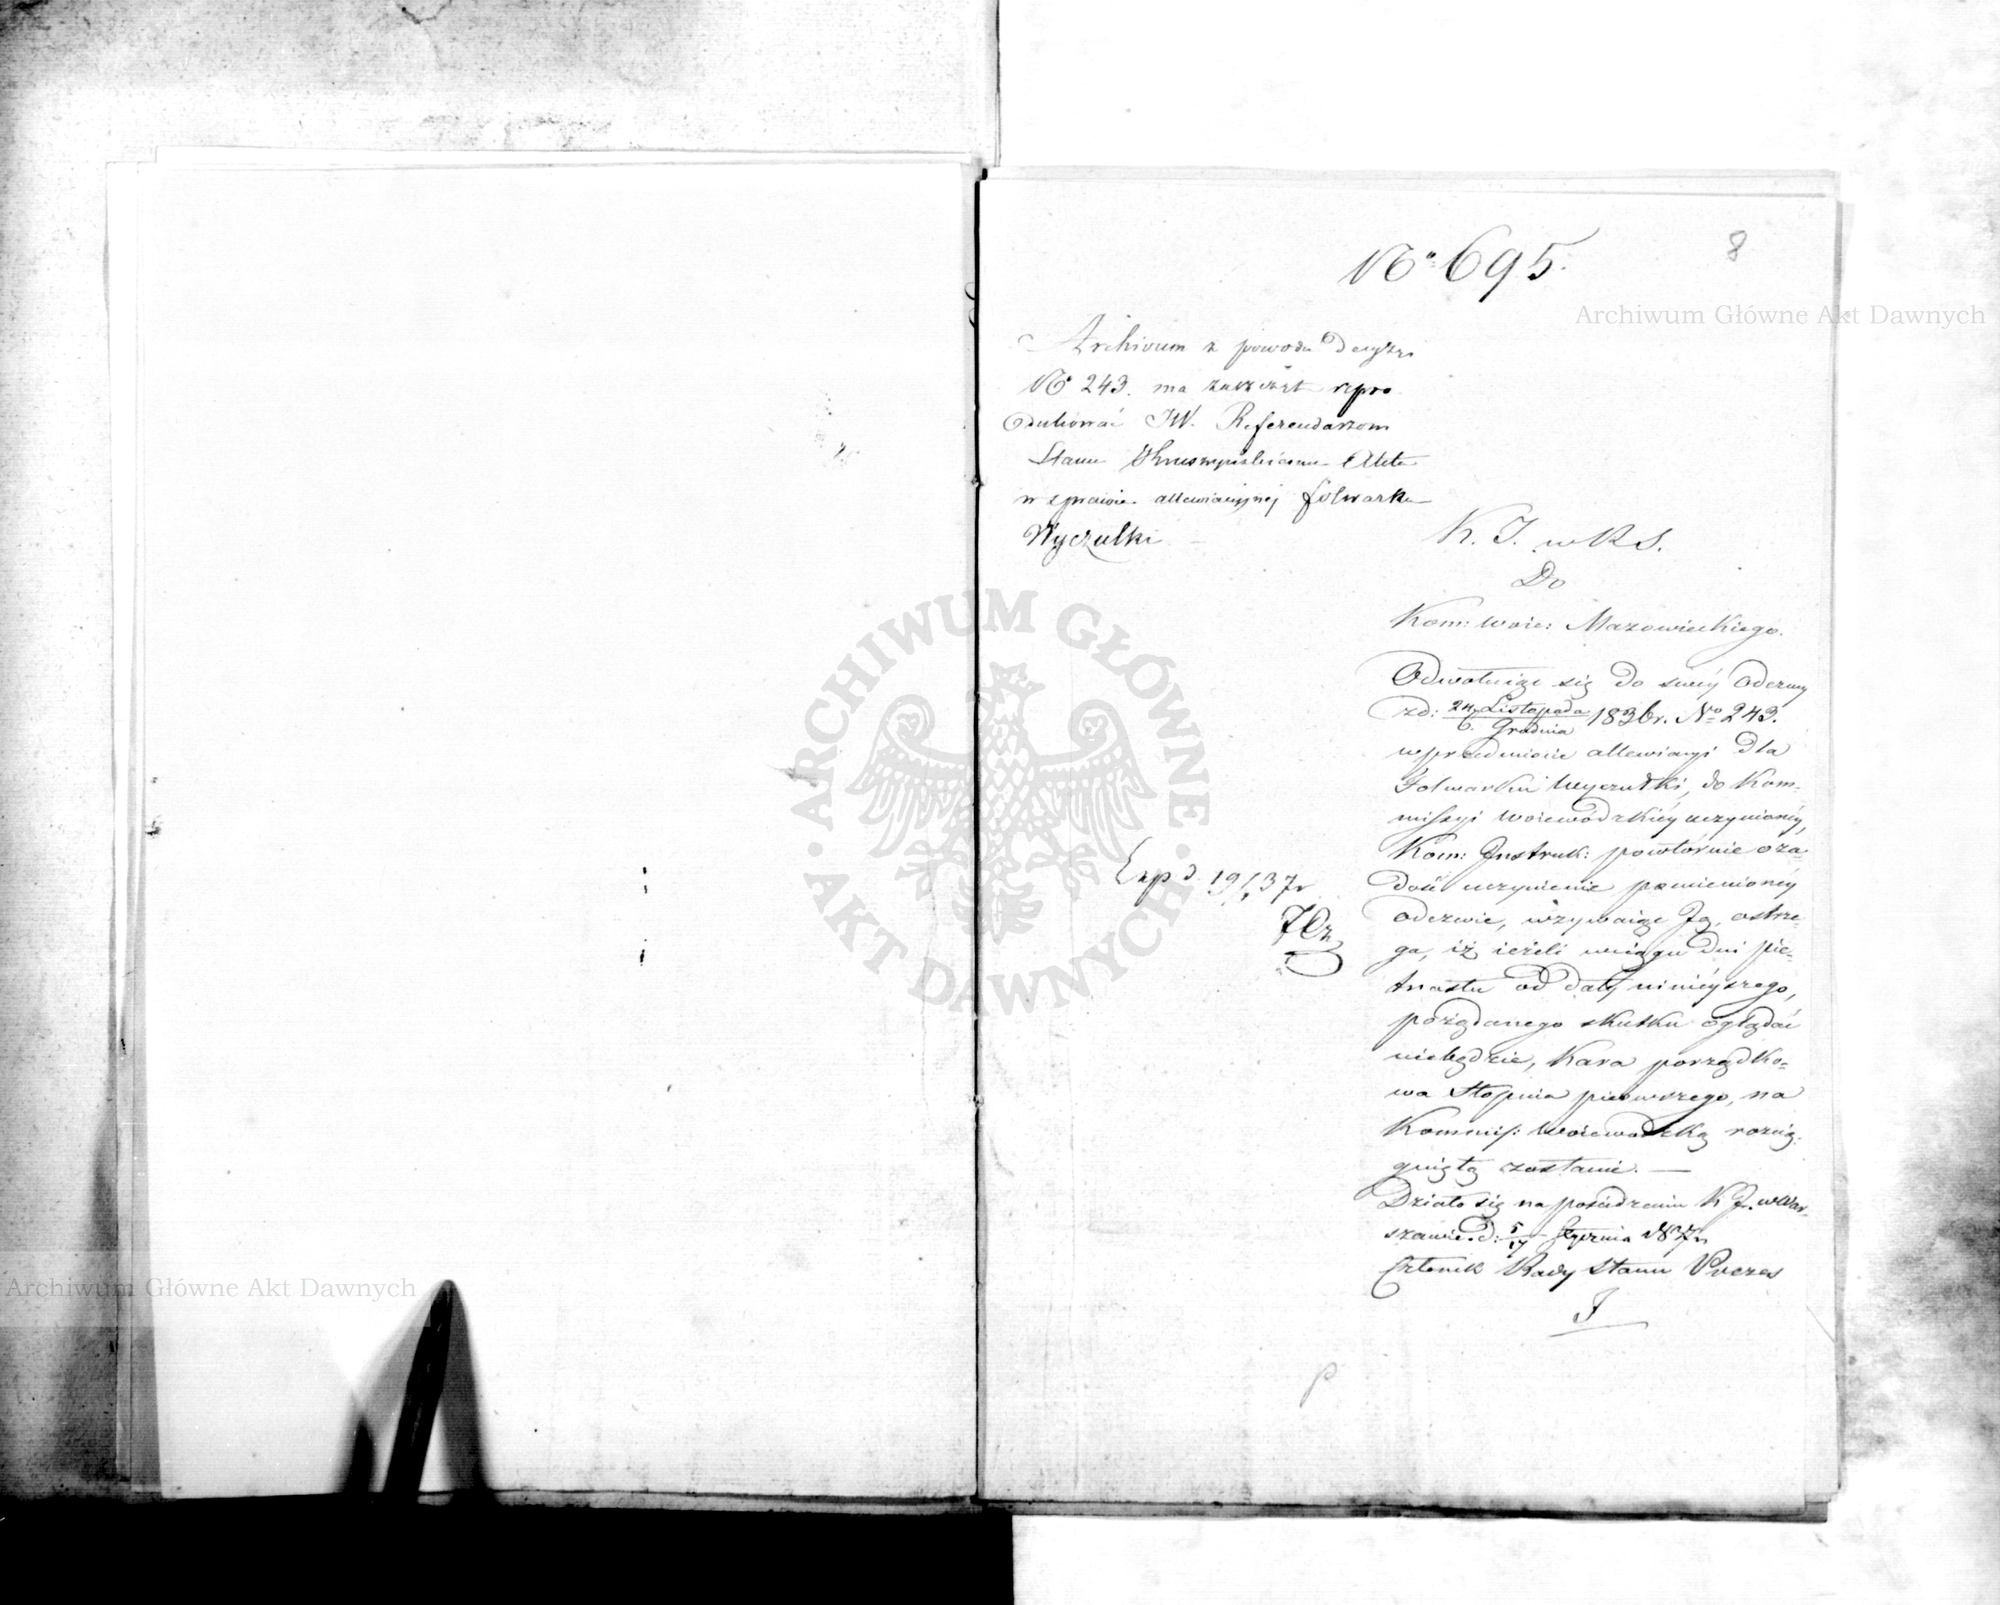 8
No 695.
Archivum z powodu Decyzyi
No 243. ma zaraz repro
dukować JW. Referendarzom
Stanu Akta
w sprawie allewiacyjnej folwarku
Wyczułki
K. J. w K S.
Do
Kom: Woie: Mazowieckiego.
Odwołuiąc się do swéy Odezwy
z d: 24 Listopada / 6. Grudnia 1836 r. No 243.
w przedmiocie allewiacyi dla
Folwarku Wyczułki, do Kom-
missyi Woiewódzkiéy uczynionéy,
Kom: Instruk: powtórnie o za-
dość uczynienie pomienionéy
odezwie, wzywaiąc Ją, ostrze-
ga, iż ieżeli w ciągu dni pię-
tnastu od daty ninieyszego,
pożądanego skutku oglądać
niebędzie, Kara porządko-
wa stopnia pierwszego, na
Kommiss: Woiewódzką rozcią-
gniętą zostanie. —
Działo się na posiedzeniu K. J. w War-
szawie d: 5/17 Stycznia 1837 r.
Członek Rady Stanu Prezes
J
Exp d. 19/1 37 r
Archiwum Główne Akt Dawnych
ARCHIWUM GŁÓWNE AKT DAWNYCH
Archiwum Główne Akt Dawnych